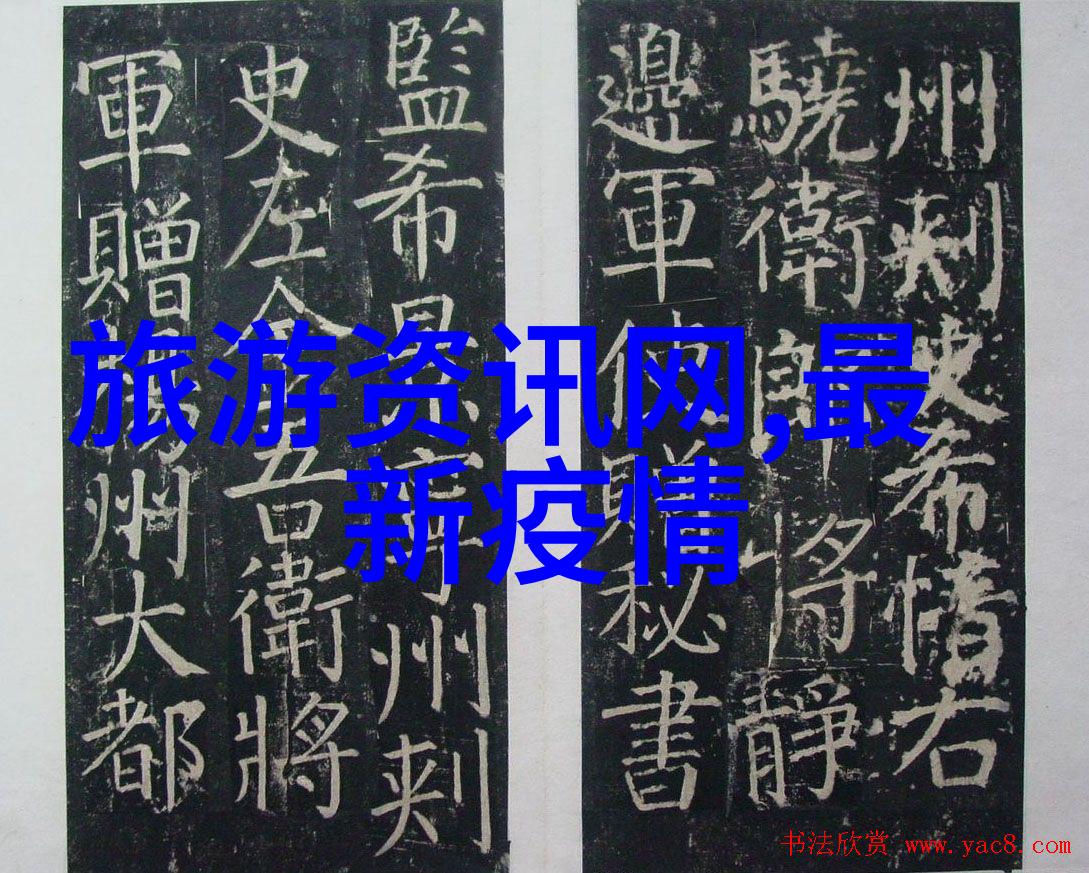 旅游资讯网,最
新疫情
州刺史希愔右
驍衛郎將靜
邊軍使贈秘書
監希景寧州刺
史左金吾衛將
軍贈揚州大都
书法欣赏 www.yac8.com